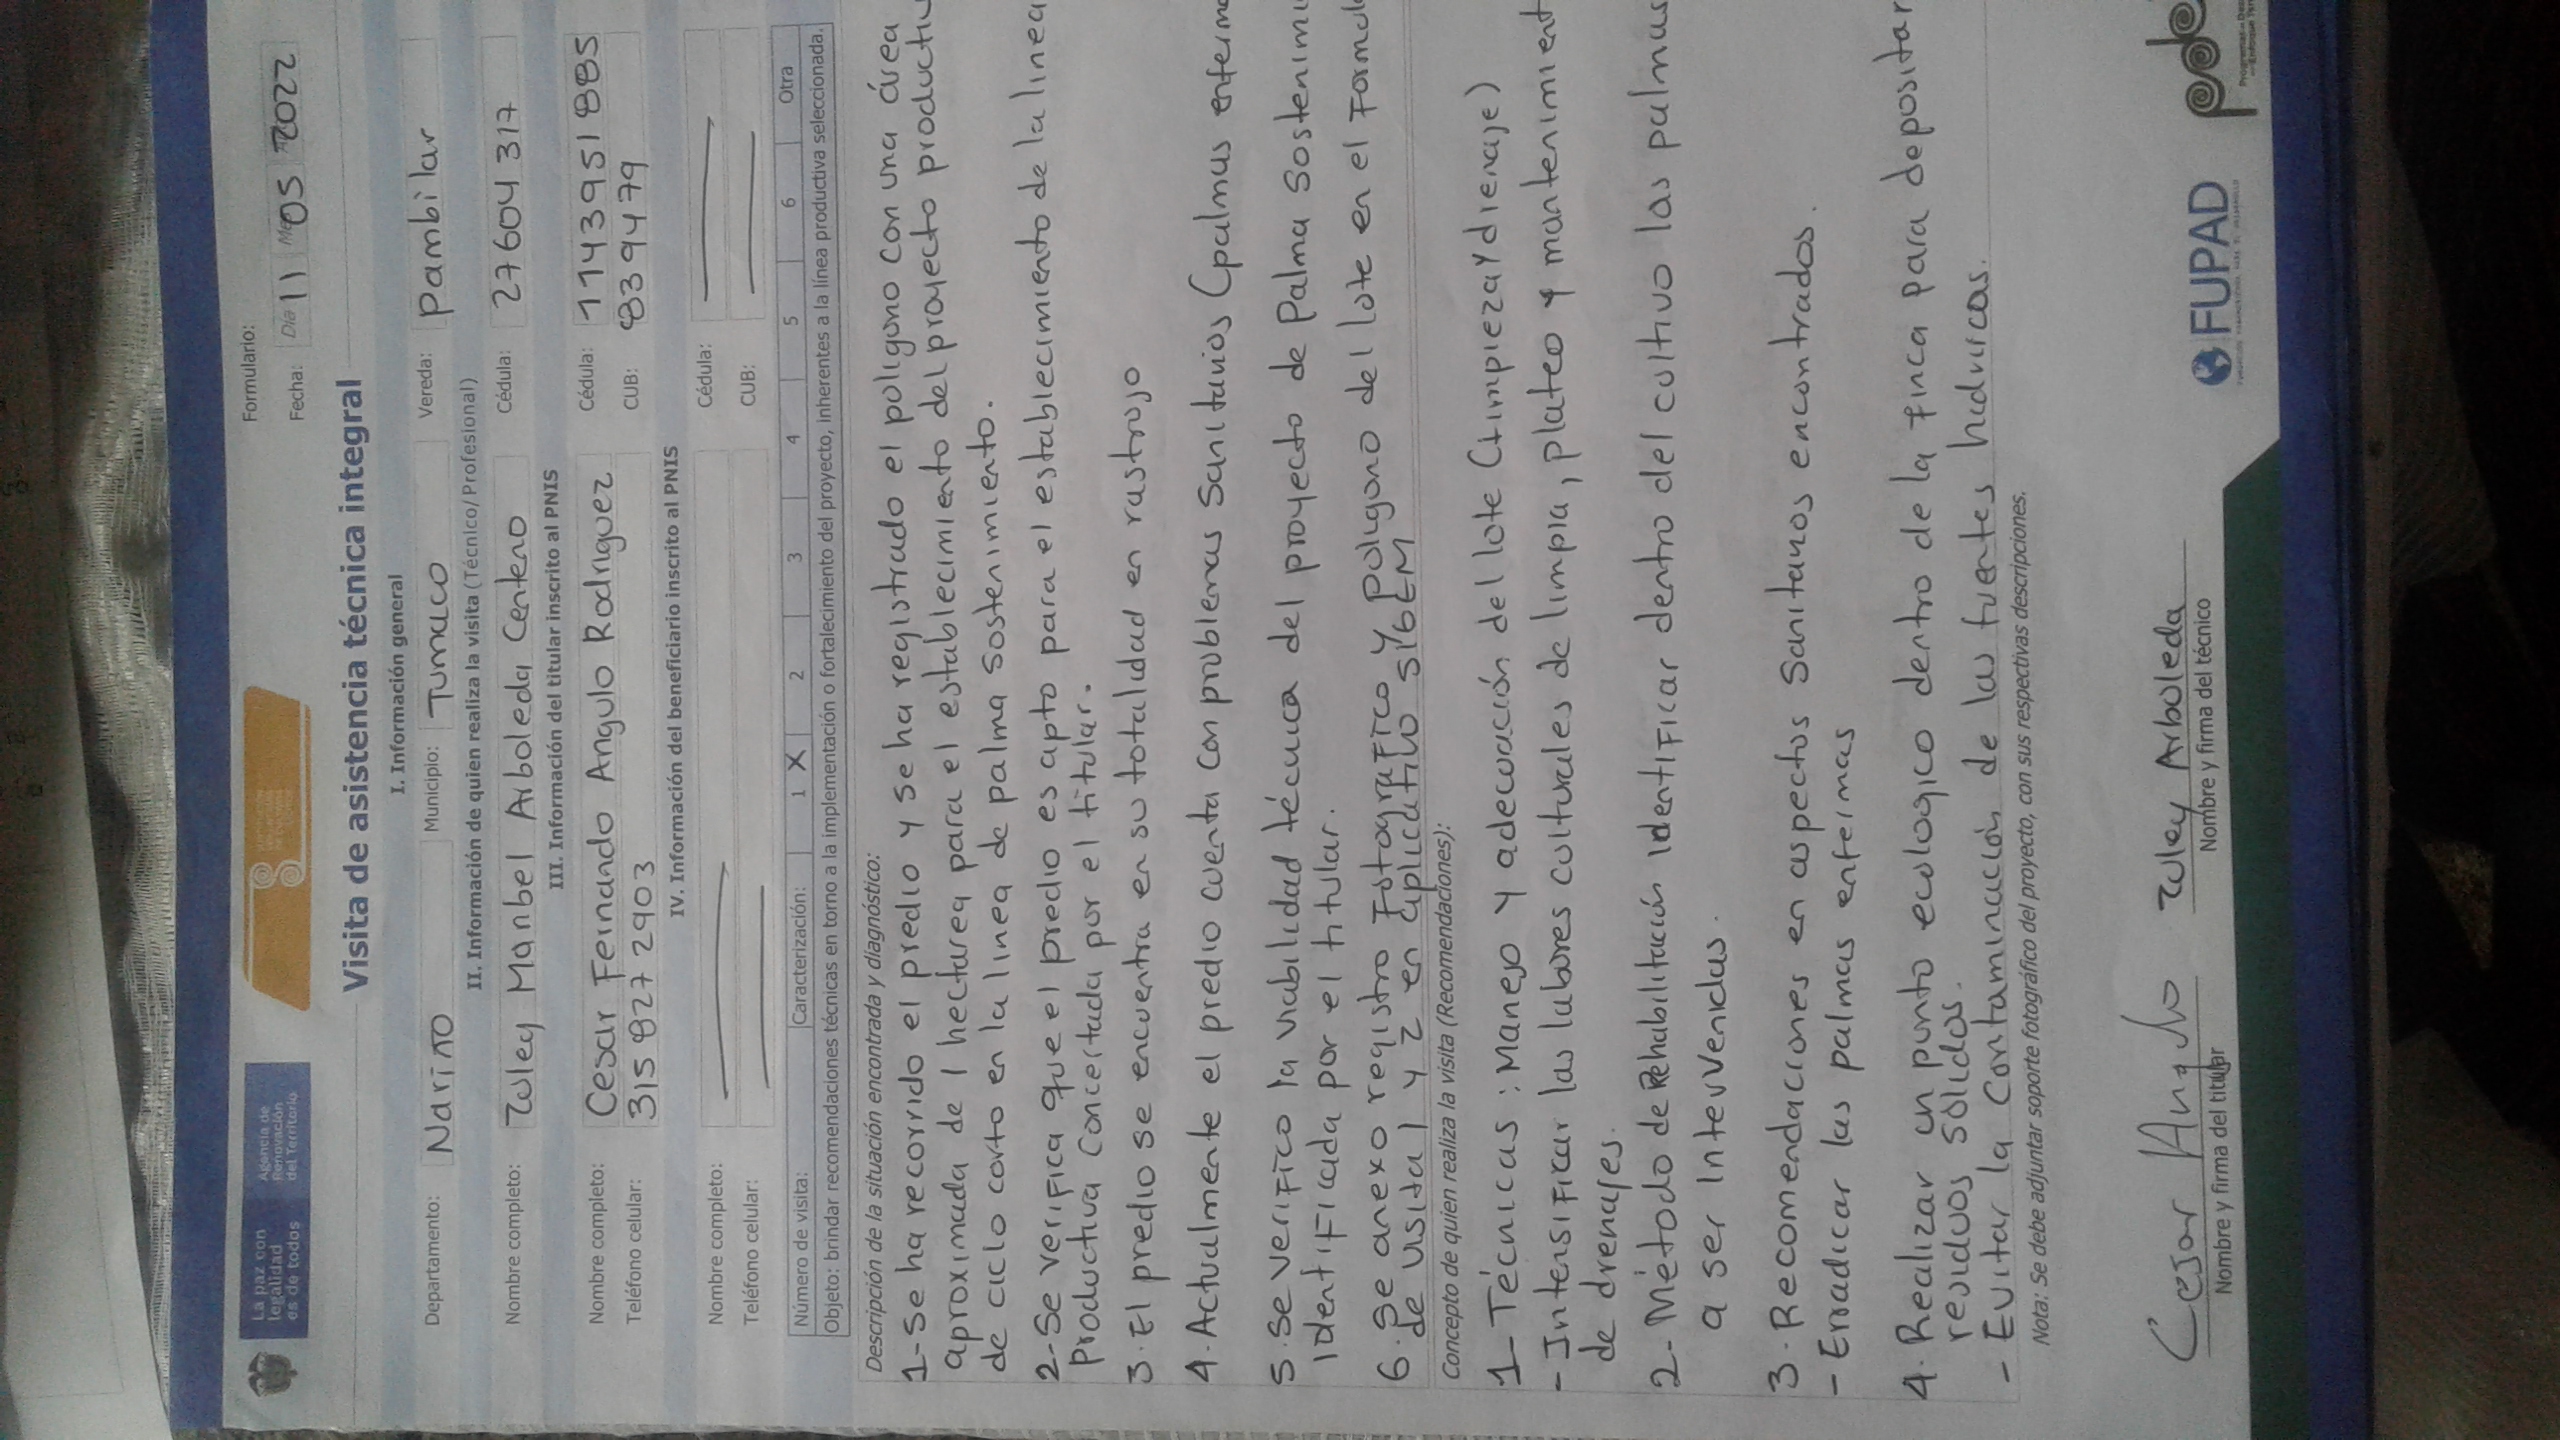 La paz con
legalidad
es de todos
Agencia de
Renovación
del Territorio
Formulario:
Fecha: Día 11 Mes 05 2022
Visita de asistencia técnica integral
I. Información general
Departamento: Nariño Municipio: Tumaco Vereda: Pambilar
II. Información de quien realiza la visita (Técnico/Profesional)
Nombre completo: Zuley Maribel Arboleda Centeno Cédula: 27604317
III. Información del titular inscrito al PNIS
Nombre completo: Cesar Fernando Angulo Rodriguez Cédula: 1143951885
Teléfono celular: 315 827 2903 CUB: 839479
IV. Información del beneficiario inscrito al PNIS
Nombre completo: Cédula:
Teléfono celular: CUB:
Número de visita: Caracterización: 1 X 2 3 4 5 6 Otra
Objeto: brindar recomendaciones técnicas en torno a la implementación o fortalecimiento del proyecto, inherentes a la línea productiva seleccionada.
Descripción de la situación encontrada y diagnóstico:
1- Se ha recorrido el predio y se ha registrado el poligono con una área
aproximada de 1 hectarea para el establecimiento del proyecto productiv
de ciclo corto en la linea de palma sostenimiento.
2- Se verifica que el predio es apto para el establecimiento de la linea
productiva concertada por el titular.
3. El predio se encuentra en su totalidad en rastrojo
4. Actualmente el predio cuenta con problemas sanitarios (palmas enferma
5. Se verifico la viabilidad técnica del proyecto de Palma sostenimi
identificada por el titular.
6. Se anexo registro fotografico y poligono del lote en el formul
de visita 1 y 2 en aplicativo SIGEM
Concepto de quien realiza la visita (Recomendaciones):
1- Técnicas: Manejo y adecuación del lote (limpieza y drenaje)
- Intensificar las labores culturales de limpia, plateo y mantenimient
de drenajes.
2- Método de Rehabilitación identificar dentro del cultivo las palmas
a ser intervenidas.
3. Recomendaciones en aspectos sanitarios encontrados.
- Erradicar las palmas enfermas
4. Realizar un punto ecologico dentro de la finca para depositar
residuos sólidos.
- Evitar la contaminación de las fuentes hidricas.
Nota: Se debe adjuntar soporte fotográfico del proyecto, con sus respectivas descripciones.
Cesar Angulo
Nombre y firma del titular
Zuley Arboleda
Nombre y firma del técnico
FUPAD
pde